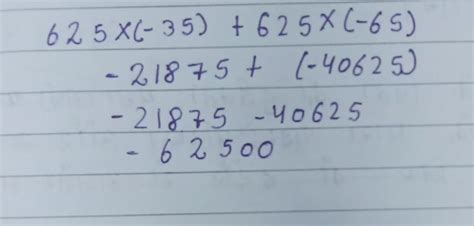 625×(-35) + 625×(-65)
-21875 + (-40625)
-21875 -40625
- 62500